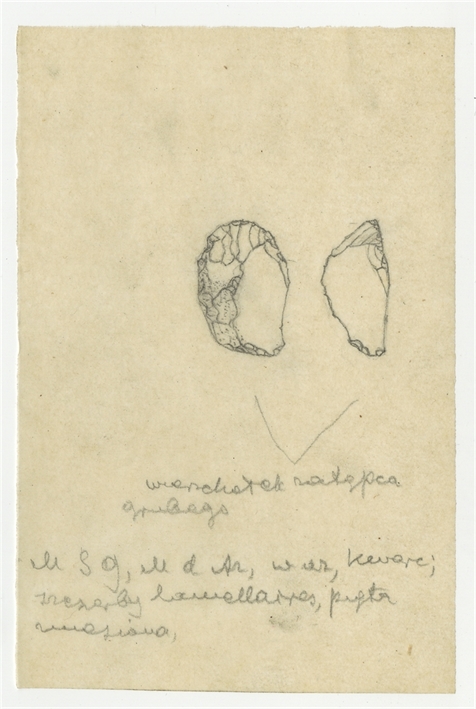 wierzchołek zatępca
grubego
M S g, M d Az, w wz, kwarc;
szczerby lamellaires, pięta
zniesiona,